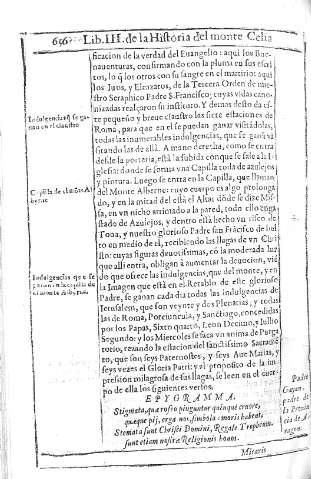 656 Lib. III. de la Historia del monte Celia
ficacion de la verdad del Euangelio: aqui los Bue-
nauenturas, confirmando con la pluma en sus escri-
tos, lo q̃ los otros con su sangre en el martirio: aqui
los Iuos, y Elzearos, de la Tercera Orden de nue-
stro Seraphico Padre S. Francisco, cuyas vidas cano-
nizadas realçaron su instituto. Y demas desto da es-
te pequeño y breue claustro las siete estaciones de
Roma, para que en el se puedan ganar visitãdolas,
todas las innumerables indulgencias, que se ganã vi-
sitando las de allà. A mano derecha, como se entra
desde la porteria, està la subida con que se sale a la I-
glesia: donde se forma vna Capilla toda de azulejos
y pintura. Luego se entra en la Capilla, que llaman
del Monte Alberne: cuyo cuerpo es algo prolonga-
do, y en la mitad del està el Altar dõde se dize Mis-
sa, en vn nicho arrimado a la pared, todo ello enga-
stado de Azulejos, y dentro ella hecho vn risco de
Toua, y nuestro glorioso Padre san Frãcisco de bul-
to en medio de el, recibiendo las llagas de vn Chri-
sto: cuyas figuras deuotissimas, cõ la moderada luz
que alli entra, obligan à aumentar la deuocion, viẽ-
do que ofrece las indulgencias, que del monte, y en
la Imagen que està en el Retablo de este glorioso
Padre, se ganan cada dia todas las indulgencias de
Ierusalem, que son veynte y dos Plenarias, y todas
las de Roma, Porciuncula, y Santiago, concedidas
por los Papas, Sixto quarto, Leon Decimo, y Iulio
Segundo: y los Miercoles se saca vn anima de Purga
torio, rezando la estacion del santissimo Sacramẽ-
to, que son seys Paternostes, y seys Aue Marias, y
seys vezes el Gloria Patri: y al proposito de la im-
presion milagrosa de sus llagas, se leen en el cuer-
po de ella los siguientes versos.
EPYGRAMMA.
Stigmata, quæ roseo pinguntur quinque cruore,
quæque pij, erga nos, simbola amoris habent,
Stemata sunt Christi Domini, Regale Trophæum,
sunt etiam nostræ Religionis honos.
Mitaris
Indulgencias q̃ se ga-
nan en el claustro
Capilla de
Indulgencias que se
ganan
Padre
padre de
la Prouin
cia de A-
ragon.